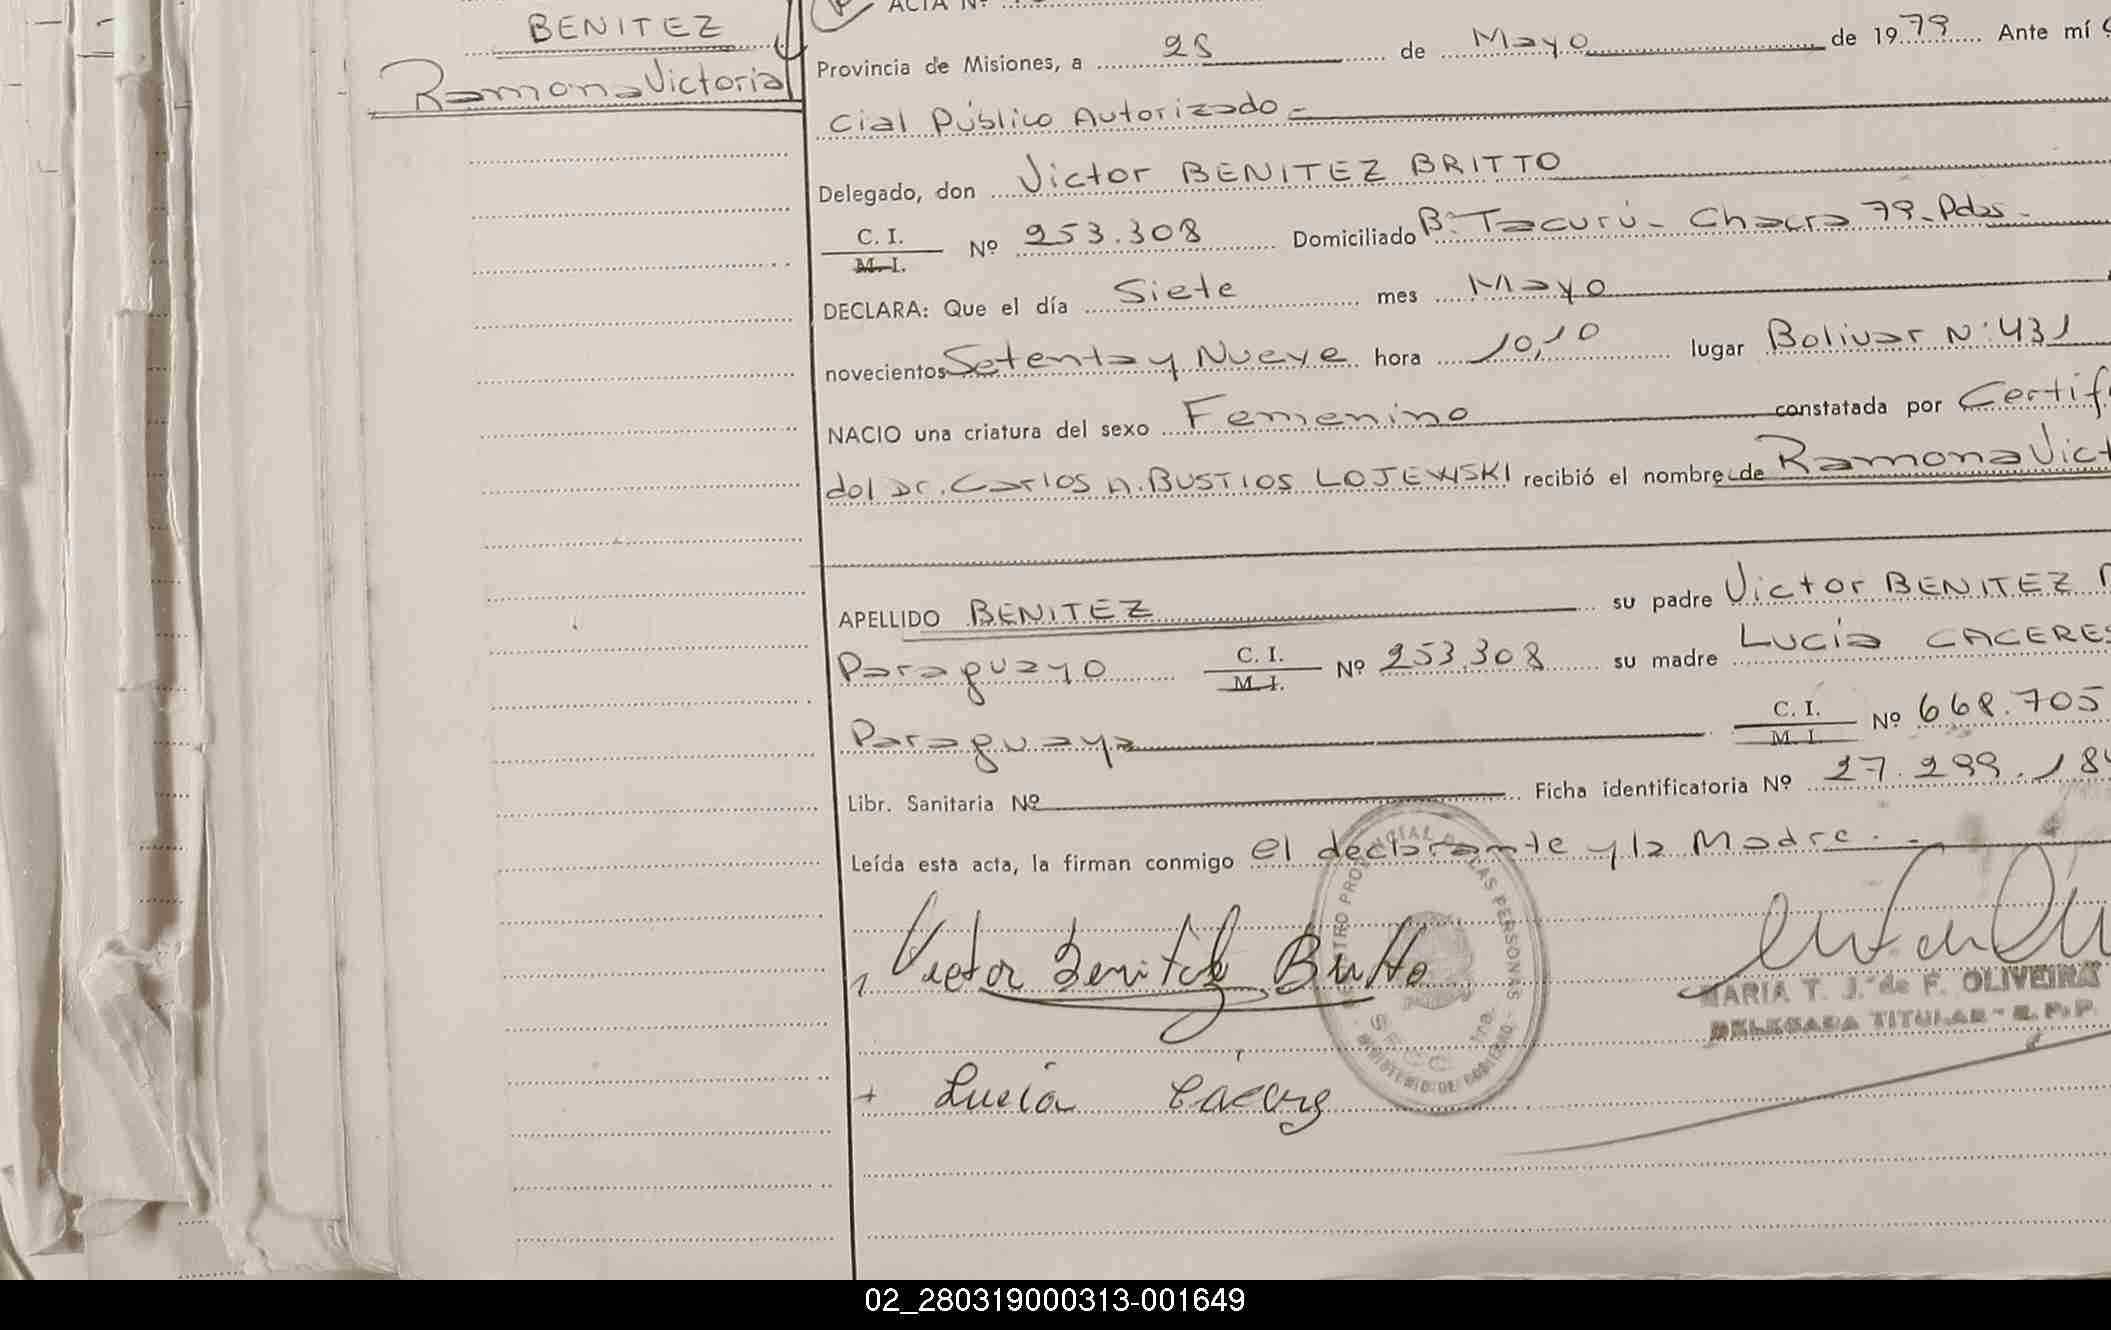 BENITEZ
Ramona Victoria
ACTA Nº
Provincia de Misiones, a 28 de Mayo de 1979. Ante mí
cial Público Autorizado
Delegado, don Victor BENITEZ BRITTO
C. I.
M. I.
Nº 253.308 Domiciliado Bº Tacurú - Chacra 79 - Pdas -
DECLARA: Que el día Siete mes Mayo
novecientos Setenta y Nueve hora 10,10 lugar Bolivar Nº 431
NACIO una criatura del sexo Femenino constatada por Certif
del Dr. Carlos A. BUSTIOS LOJEWSKI recibió el nombre de Ramona Vict
APELLIDO BENITEZ su padre Victor BENITEZ
Paraguayo C. I. Nº 253.308 su madre Lucía CACERES
M. I.
Paraguaya C. I. Nº 668.705
M. I.
Libr. Sanitaria Nº Ficha identificatoria Nº 27.299.18
Leída esta acta, la firman conmigo el declarante y la Madre. -
Victor Benitez Britto
MARIA T. J. de F. OLIVEIRA
DELEGADA TITULAR - R. P. P.
Lucía Cáceres
02_280319000313-001649